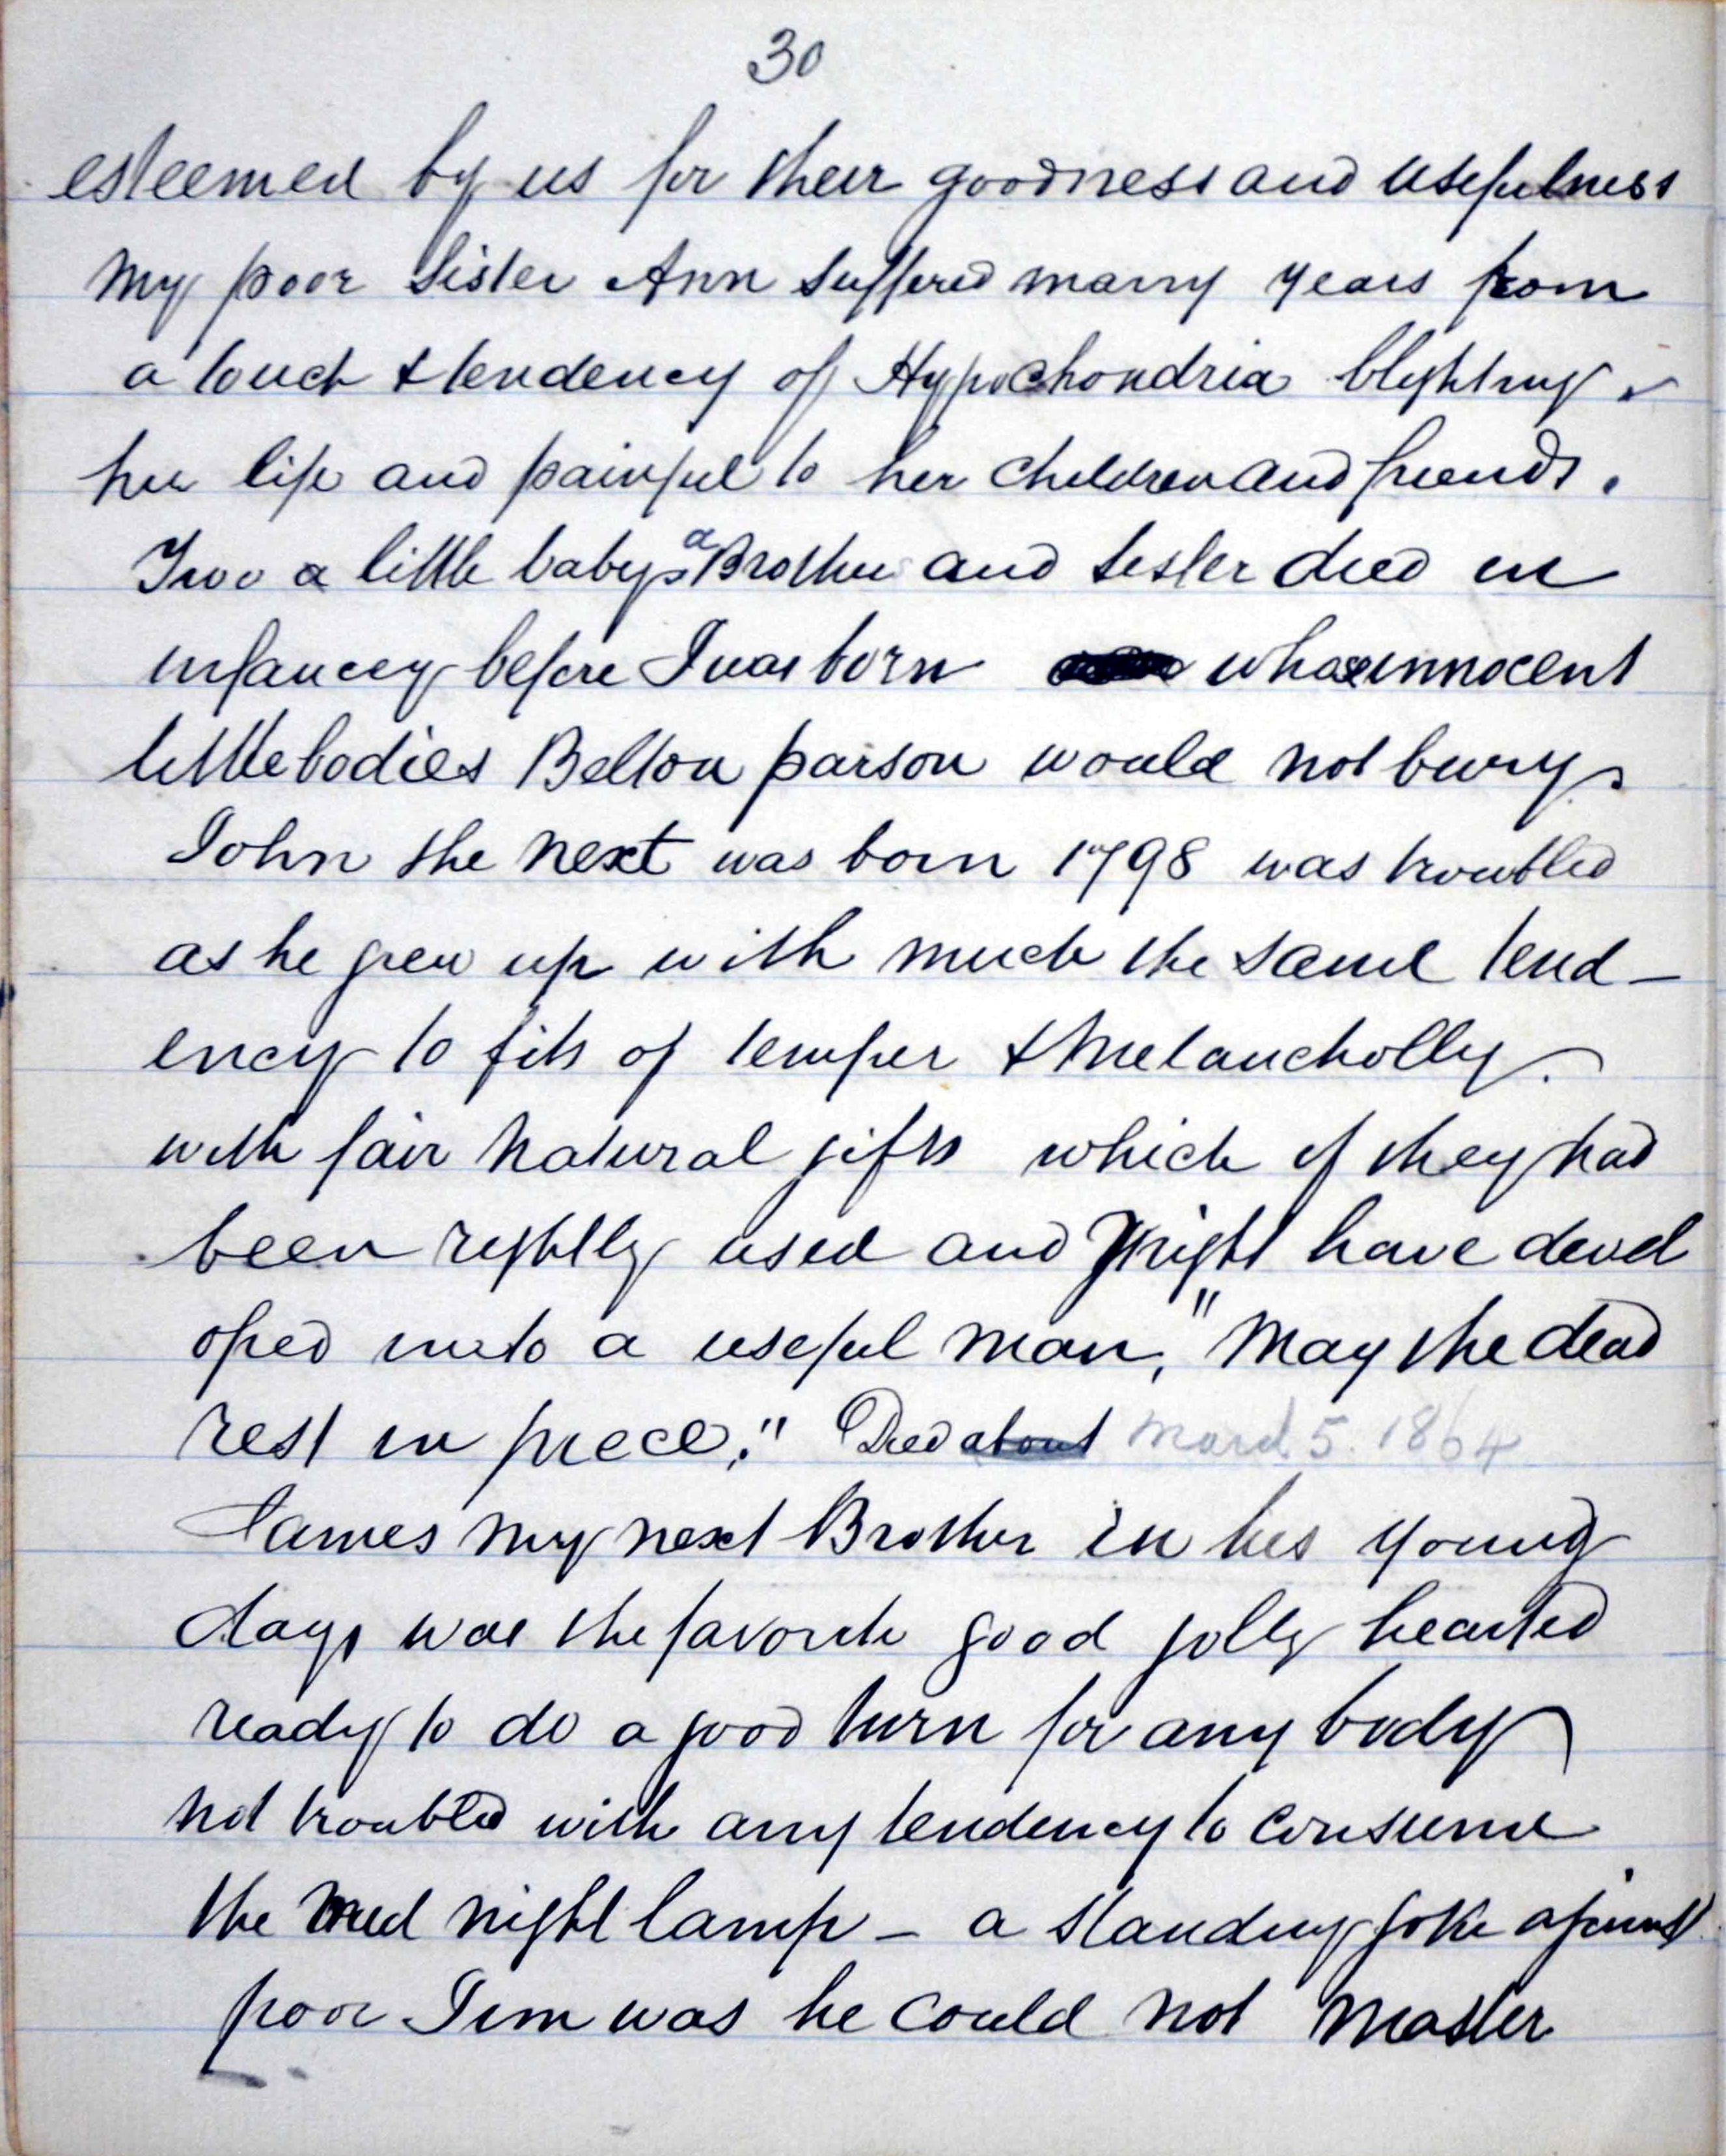 30
esteemed by us for their goodness and usefulness
My poor Sister Ann suffered many years from
a touch & tendency of Hypochondria blighting
her life and painful to her children and friends.
Two a little babys a Brother and sister died in
infancey before I was born whose innocent
little bodies Belton parson would not bury.
John the next was born 1798 was troubled
as he grew up with much the same tend-
ency to fits of temper & Melancholly.
with fair Natural gifts which if they had
been rightly used and Might have devel
oped into a useful man, "May the dead
rest in piece." Died about March 5. 1864
James my next Brother in his young
days was the favorite good jolly hearted
ready to do a good turn for any body
not troubled with any tendency to consume
the mid night lamp - a standing joke against
poor Jim was he could not Master